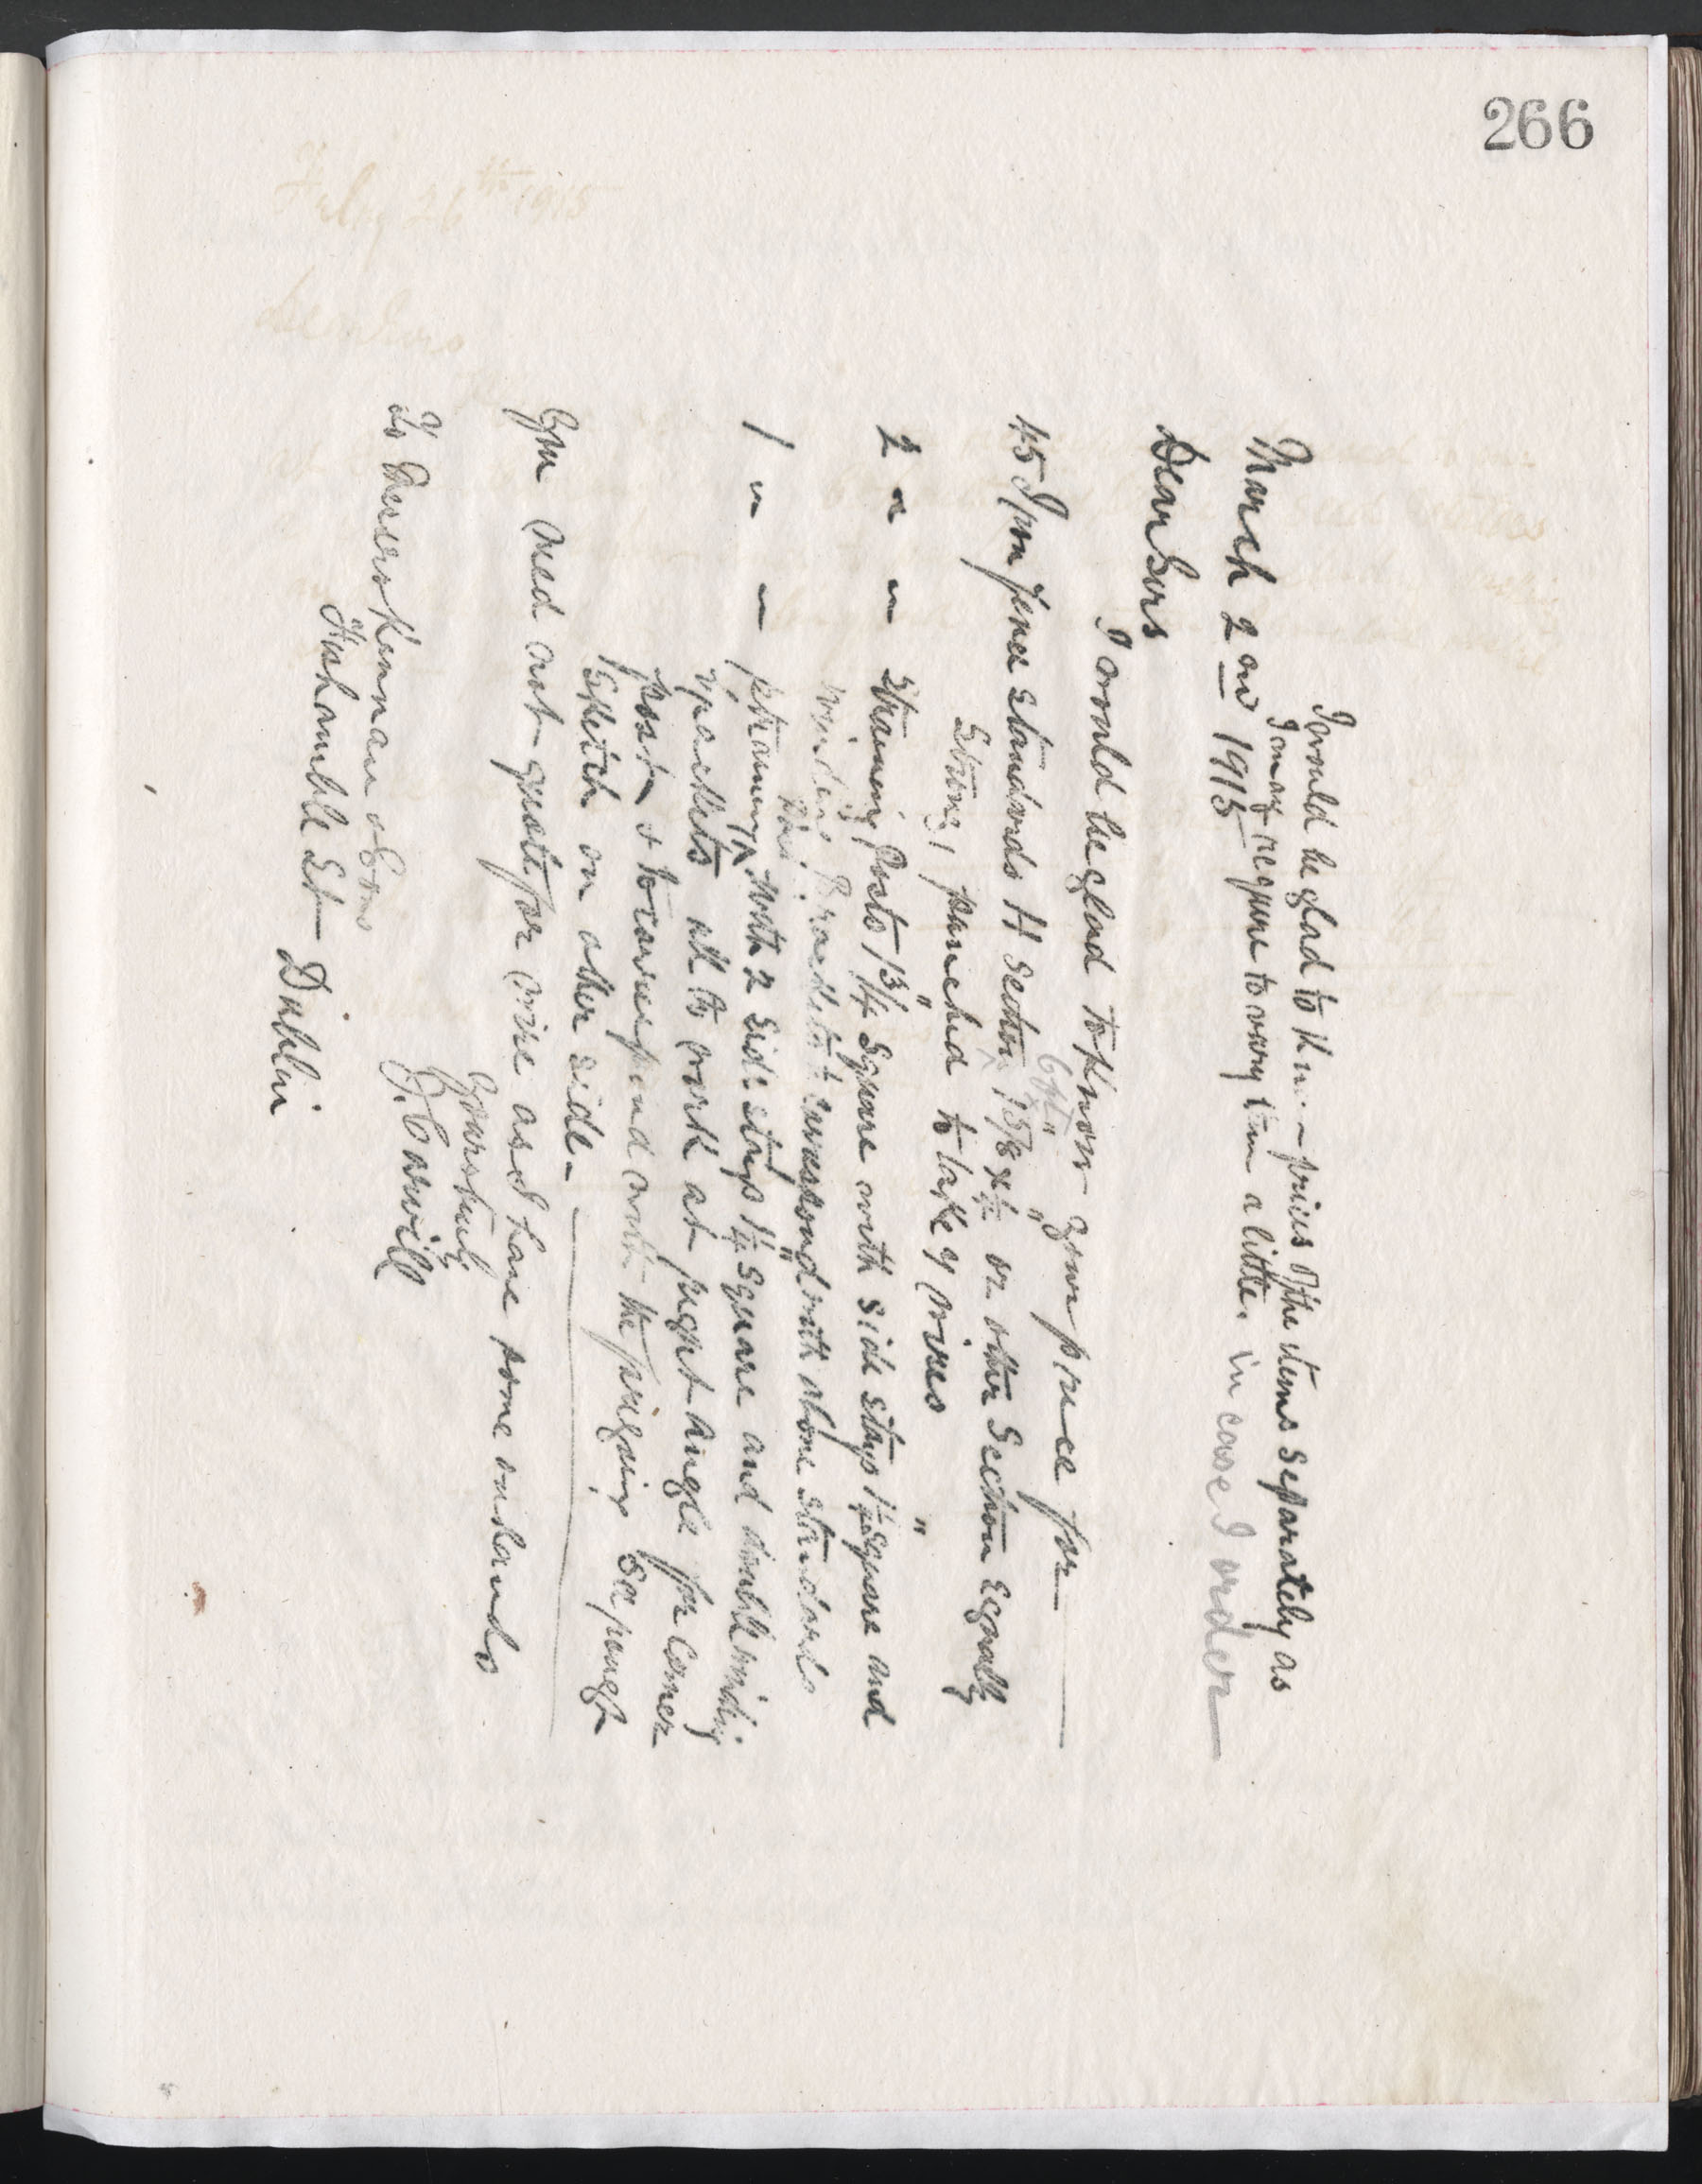 266
I would be glad to know prices of the items separately as
I may require to vary them a little in case I order
March 2nd 1915
Dear Sirs
I would be glad to know your price for
45 Iron fence standards H section 1 5/8" x 1/2" or other section equally
strong, punched to take 7 wires
2 " " straining posts 1 3/4" square with side stays 1 1/4" square and
winding Brackets to correspond with above standards
1 " " straining with 2 side stays 1 1/4" square and double winding
brackets all to work at right angle for corner
post & to correspond with the foregoing See rough
sketch on other side -
You need not quote for wire as I have some on hands
Yours truly
J. Carvill
To Messrs Kennan & Sons
Fishamble St Dublin
July 26th 1915
Dear Sirs